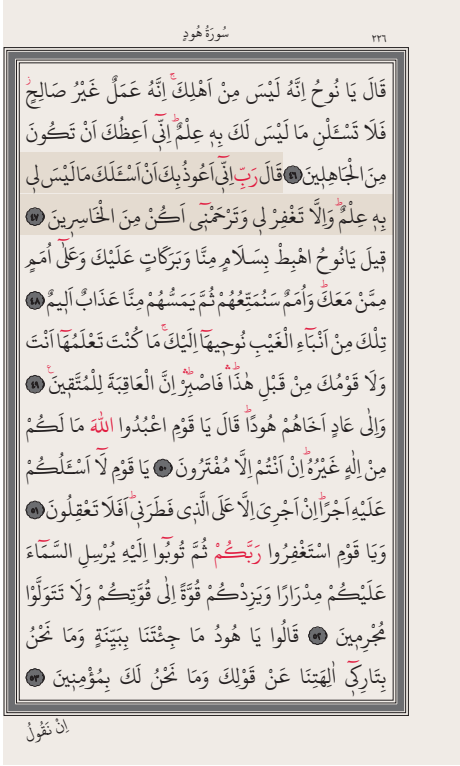 سُورَةُ هُودٍ
٢٢٦
قَالَ يَا نُوحُ اِنَّهُ لَيْسَ مِنْ اَهْلِكَۚ اِنَّهُ عَمَلٌ غَيْرُ صَالِحٍۗ
فَلَا تَسْـَٔلْنِ مَا لَيْسَ لَكَ بِهٖ عِلْمٌۜ اِنّٖٓي اَعِظُكَ اَنْ تَكُونَ
مِنَ الْجَاهِلٖينَ ٤٦ قَالَ رَبِّ اِنّٖٓي اَعُوذُ بِكَ اَنْ اَسْـَٔلَكَ مَا لَيْسَ لٖي
بِهٖ عِلْمٌۜ وَاِلَّا تَغْفِرْ لٖي وَتَرْحَمْنٖٓي اَكُنْ مِنَ الْخَاسِرٖينَ ٤٧
قٖيلَ يَا نُوحُ اهْبِطْ بِسَلَامٍ مِنَّا وَبَرَكَاتٍ عَلَيْكَ وَعَلٰٓى اُمَمٍ
مِمَّنْ مَعَكَۜ وَاُمَمٌ سَنُمَتِّعُهُمْ ثُمَّ يَمَسُّهُمْ مِنَّا عَذَابٌ اَلٖيمٌ ٤٨
تِلْكَ مِنْ اَنْبَٓاءِ الْغَيْبِ نُوحٖيهَٓا اِلَيْكَۚ مَا كُنْتَ تَعْلَمُهَٓا اَنْتَ
وَلَا قَوْمُكَ مِنْ قَبْلِ هٰذَاۜۛ فَاصْبِرْۜۛ اِنَّ الْعَاقِبَةَ لِلْمُتَّقٖينَ۟ ٤٩
وَاِلٰى عَادٍ اَخَاهُمْ هُودًاۜ قَالَ يَا قَوْمِ اعْبُدُوا اللّٰهَ مَا لَكُمْ
مِنْ اِلٰهٍ غَيْرُهُۜ اِنْ اَنْتُمْ اِلَّا مُفْتَرُونَ ٥٠ يَا قَوْمِ لَٓا اَسْـَٔلُكُمْ
عَلَيْهِ اَجْرًاۜ اِنْ اَجْرِيَ اِلَّا عَلَى الَّذٖي فَطَرَنٖيۜ اَفَلَا تَعْقِلُونَ ٥١
وَيَا قَوْمِ اسْتَغْفِرُوا رَبَّكُمْ ثُمَّ تُوبُٓوا اِلَيْهِ يُرْسِلِ السَّمَٓاءَ
عَلَيْكُمْ مِدْرَارًا وَيَزِدْكُمْ قُوَّةً اِلٰى قُوَّتِكُمْ وَلَا تَتَوَلَّوْا
مُجْرِمٖينَ ٥٢ قَالُوا يَا هُودُ مَا جِئْتَنَا بِبَيِّنَةٍ وَمَا نَحْنُ
بِتَارِكٖٓي اٰلِهَتِنَا عَنْ قَوْلِكَ وَمَا نَحْنُ لَكَ بِمُؤْمِنٖينَ ٥٣
اِنْ نَقُولُ